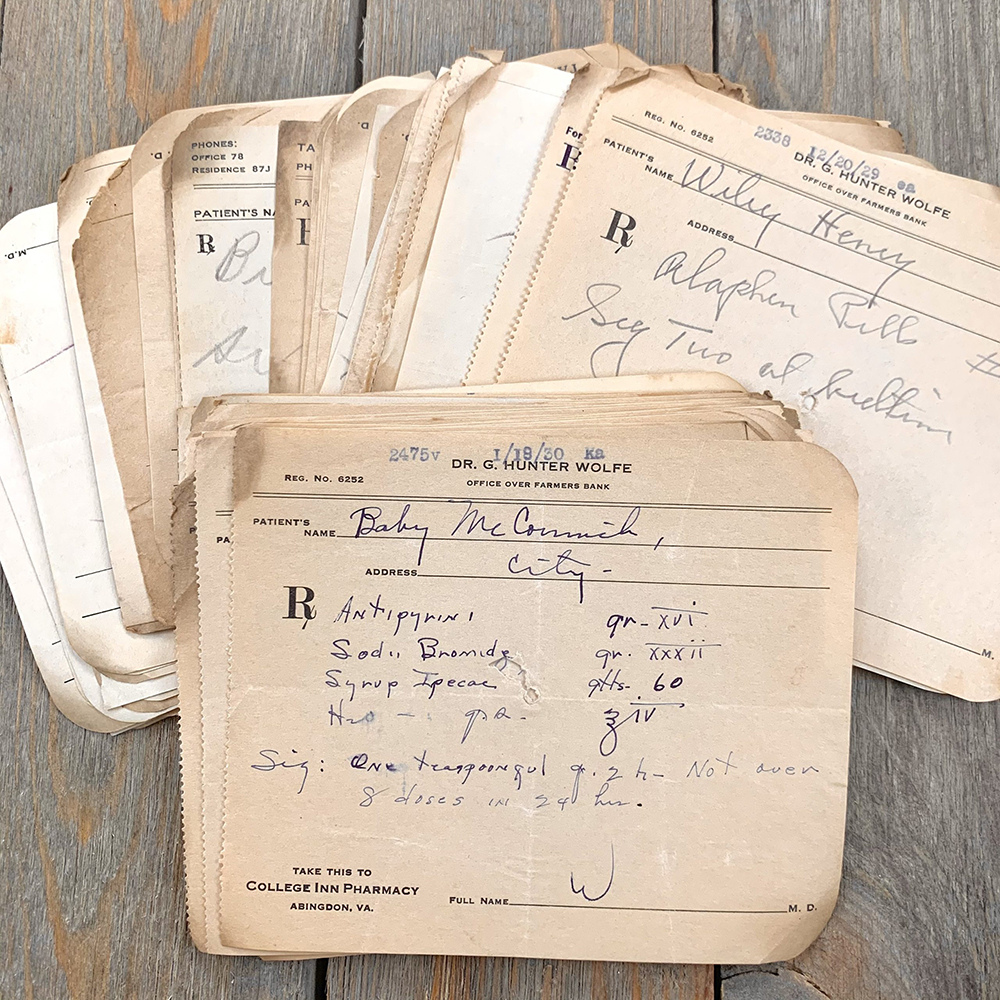 M.D.
D.
PHONES:
OFFICE 78
RESIDENCE 87J
PATIENT'S NA
R
TA
PH
PA
D.
For
REG. No. 6252
2338 12/20/29 ea
DR. G. HUNTER WOLFE
OFFICE OVER FARMERS BANK
PATIENT'S NAME Wiley Henry
ADDRESS
R
Pills #
Sig Two at bedtime
2475v 1/18/30 Ka
DR. G. HUNTER WOLFE
REG. No. 6252
OFFICE OVER FARMERS BANK
PATIENT'S NAME Baby McCormick,
ADDRESS City -
R Antipyrini gr - xvi
Sodii Bromide gr. xxxii
Syrup Ipecac gtts - 60
H2O - q.s. - ʒ iv
Sig: One teaspoonful q. 2 h - Not over
8 doses in 24 hrs.
W
TAKE THIS TO
COLLEGE INN PHARMACY
ABINGDON, VA.
FULL NAME M. D.
P
PA
M.